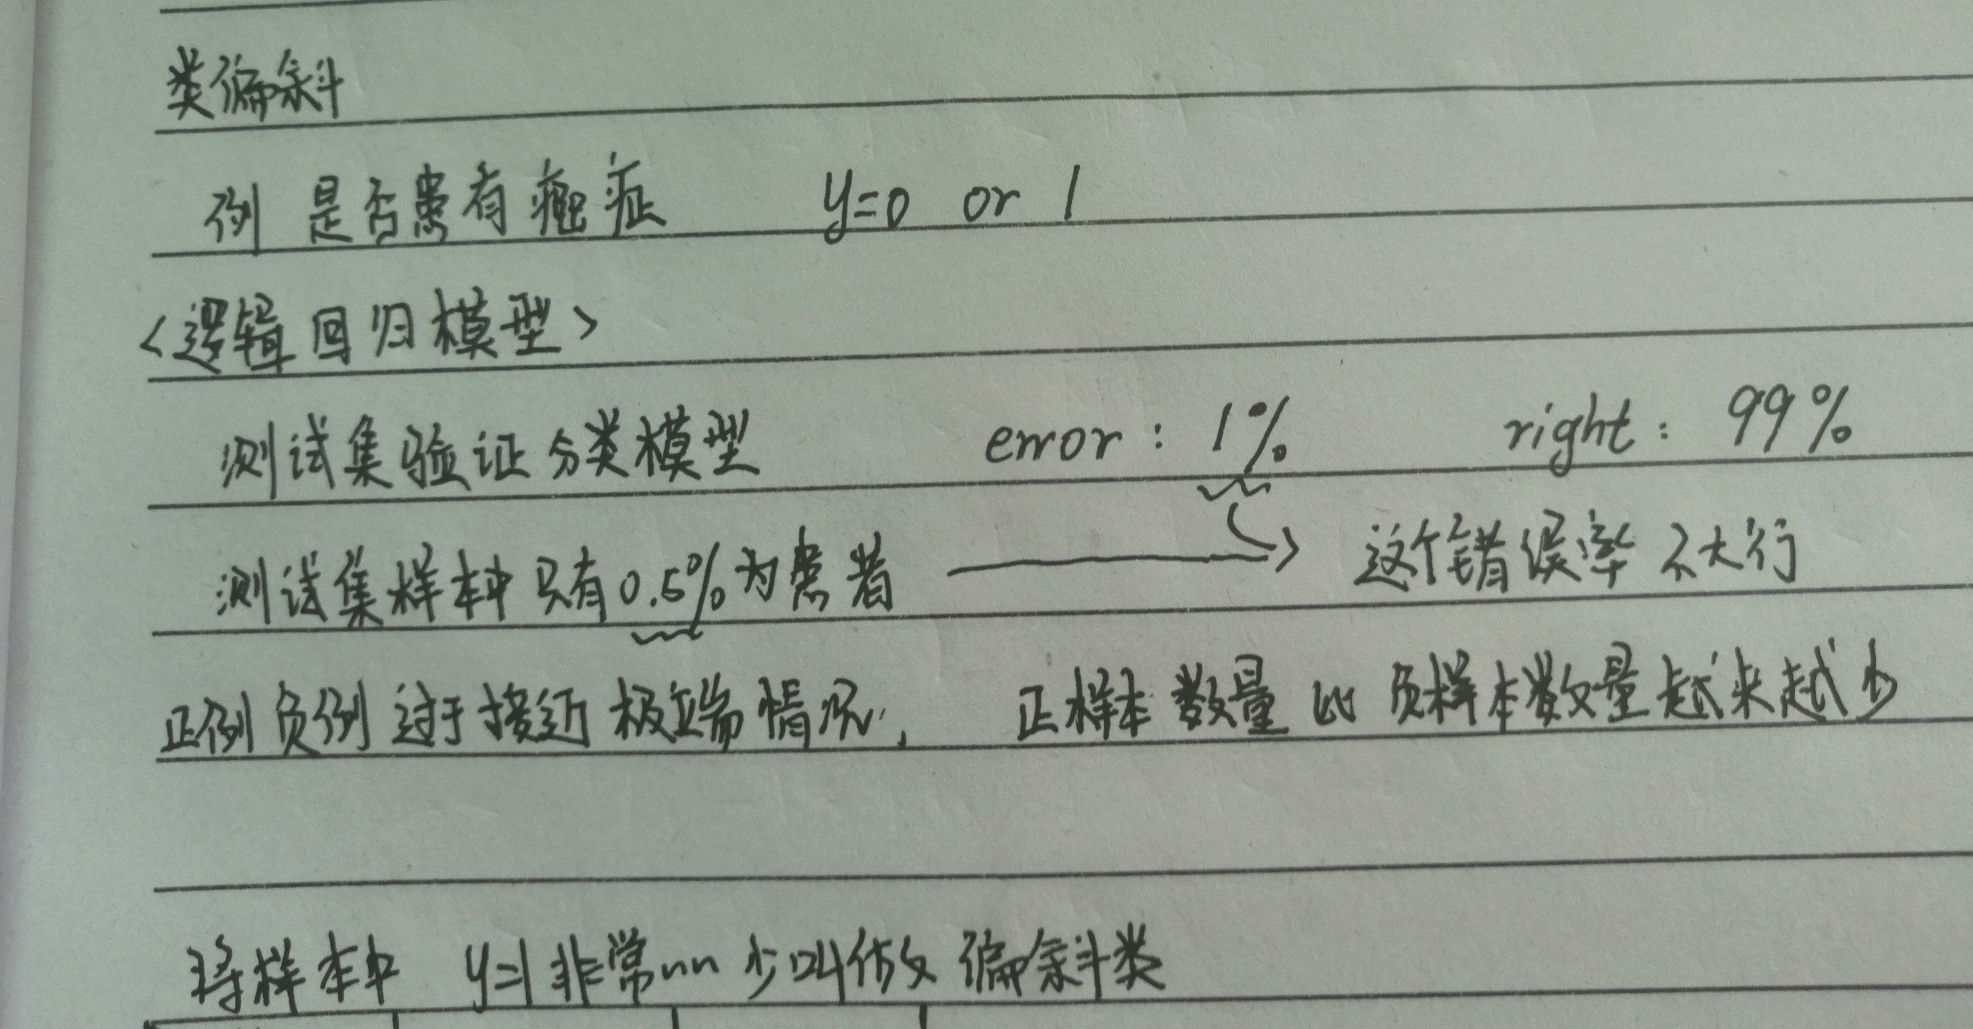 类偏斜
例 是否患有癌症 y=0 or 1
<逻辑回归模型>
测试集验证分类模型 error: 1% right: 99%
测试集样本中只有0.5%为患者 → 这个错误率不大行
正例负例过于接近极端情况, 正样本数量比负样本数量越来越少
将样本中 y=1非常nn少叫做 偏斜类